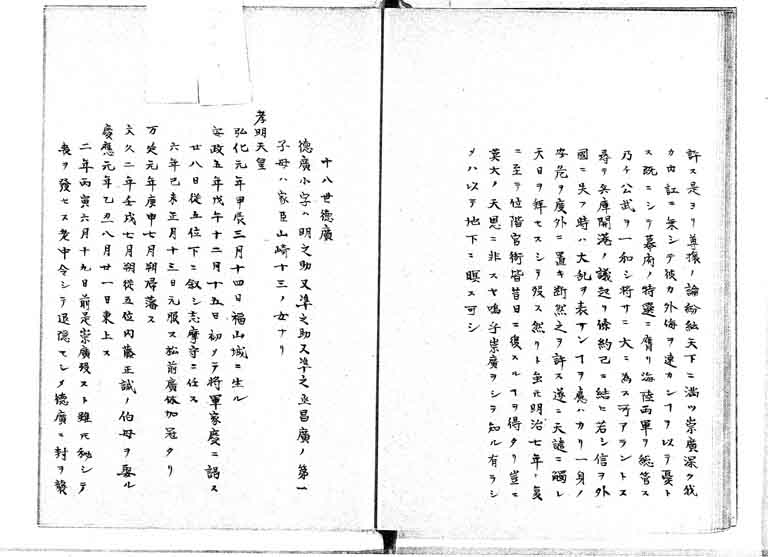 許ス是ヨリ尊攘ノ論紛紜天下ニ満ツ崇廣深ク我
カ内訌ニ乗シテ彼カ外侮ヲ速カンヿヲ以テ憂ト
ス既ニシテ幕府ノ特選ニ膺リ海陸両軍ヲ総管ス
乃チ公武ヲ一和シ将サニ大ニ為ス所アラントス
尋テ兵庫開港ノ議起リ條約已ニ結ヒ若シ信ヲ外
國ニ失フ時ハ大乱ヲ表サンヿヲ慮ハカリ一身ノ
安危ヲ度外ニ置キ断然之ヲ許ス遂ニ天譴ニ觸レ
天日ヲ拜セスシテ歿ス然リト虽𪜈明治七年ニ
ニ至テ位階官術皆昔日ニ復スルヿヲ得タリ豈ニ
莫大ノ天恩ニ非スヤ嗚乎崇廣ヲシテ知ル有ラシ
メハ以テ地下ニ瞑ス可シ
十八世徳廣
徳廣小字ハ明之助又準之助又準之丞昌廣ノ第一
子母ハ家臣山崎十三ノ女ナリ
孝明天皇
弘化元年甲辰三月十四日福山城ニ生ル
安政五年戊午十二月十五日初メテ将軍家慶ニ謁ス
廿八日從五位下ニ叙シ志摩守ニ任ス
六年己未正月十三日元服ス松前廣休加冠タリ
万延元年庚申七月朔帰藩ス
文久二年壬戌七月朔從五位内藤正誠ノ伯母ヲ娶ル
慶應元年乙丑八月廿一日東上ス
二年丙寅六月十九日前是崇廣歿スト雖𪜈秘シテ
喪ヲ發セス老中令シテ退隠セシメ徳廣ニ封ヲ襲